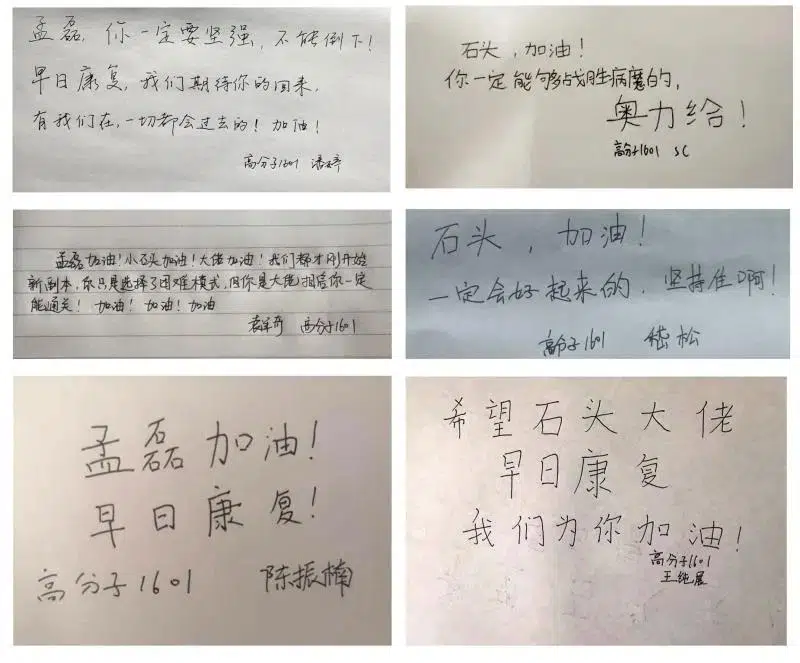 孟磊，你一定要坚强，不能倒下！
早日康复，我们期待你的回来，
有我们在，一切都会过去的！加油！
高分子1601
石头，加油！
你一定能够战胜病魔的，
奥力给！
高分子1601 SC
孟磊加油！小石头加油！大佬加油！我们都才刚开始
新副本，你只是选择了困难模式，但你是大佬相信你一定
能通关！加油！加油！加油
高分子1601
石头，加油！
一定会好起来的，坚持住啊！
高分子1601 嵇松
孟磊加油！
早日康复！
高分子1601 陈振楠
希望石头大佬
早日康复
我们为你加油！
高分子1601
王纯展